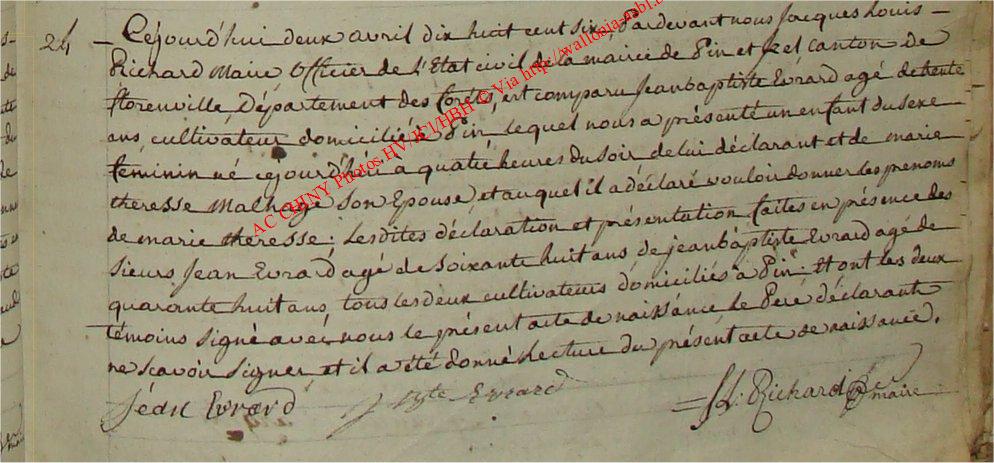 24 — Cejourd'hui deux avril dix huit cent six, Pardevant nous Jacques Louis —
Richard Maire Officier de l'Etat civil de la mairie de Pin et Izel canton de
florenville, Département des forêts, est comparu Jeanbaptiste Evrard agé de trente
ans, cultivateur domicilié à Pin lequel nous a présenté un enfant du sexe —
feminin né cejourd'hui a quatre heures du soir de lui déclarant et de marie
theresse Malhage son Epouse, et auquel il a déclaré vouloir donner les prenoms
de marie theresse : Lesdites déclaration et présentation faites en présence des
sieurs Jean Evrard agé de soixante huit ans de jeanbaptiste Evrard agé de
quaronte huit ans, tous les deux cultivateurs domiciliés à Pin Et ont les deux
témoins signé avec nous le présent acte de naissance, Le Peré déclarant
ne scavoir signer, et il a été donné lecture du présent acte de naissance.
Jéan Evrard J Bpte Evrard JL. Richard maire
AC CHINY Photos HV/JC1/HBH © Via http://wallonia-asbl.